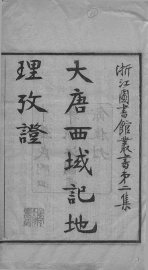 浙江圖書館叢書第二集
大唐西域記地
理攷證